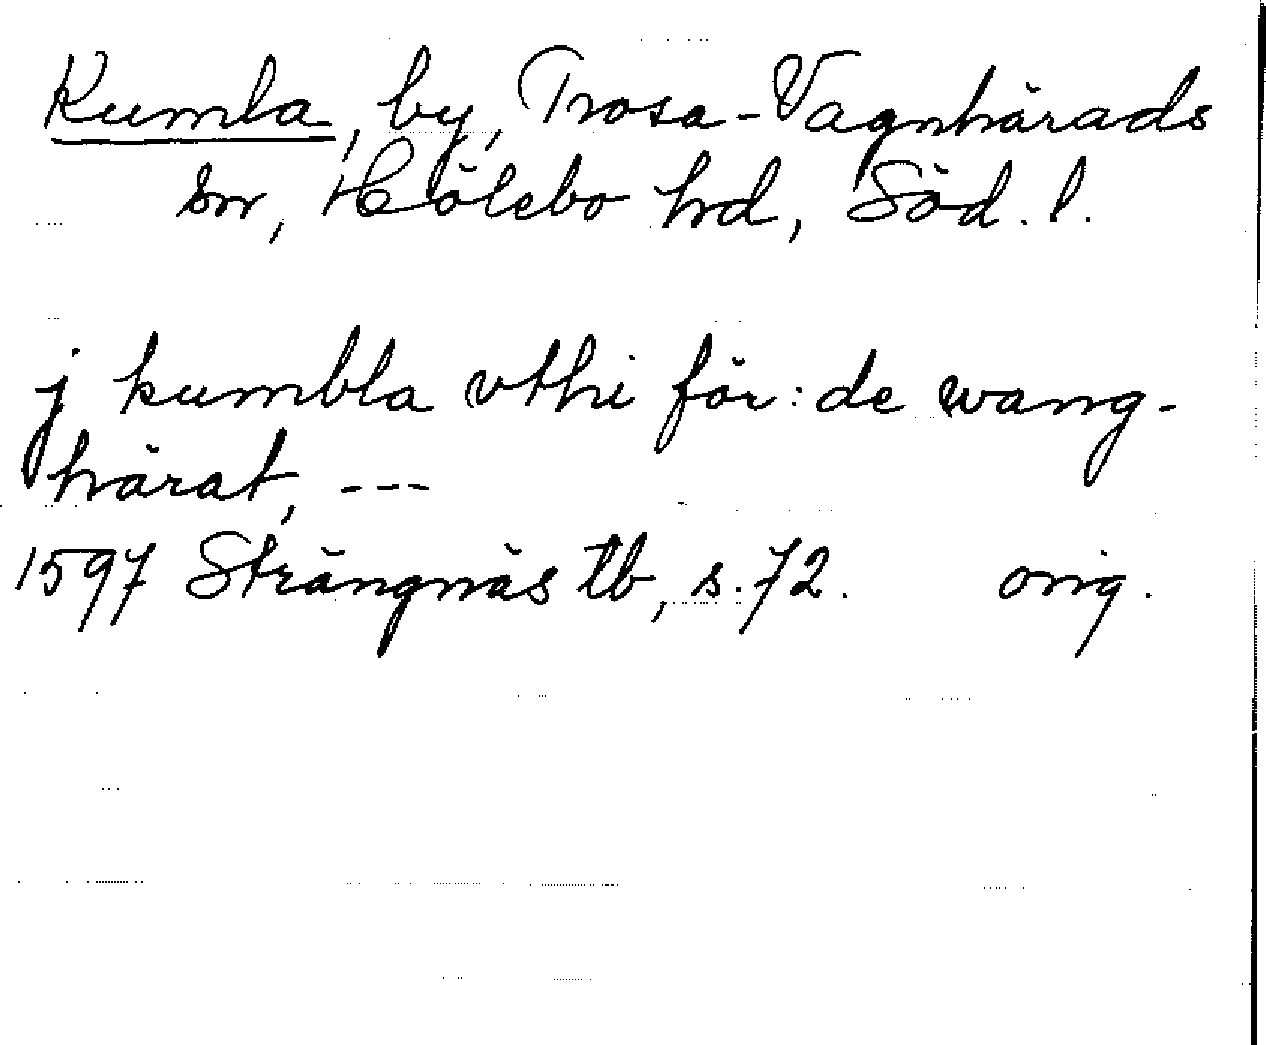 Kumla, by, Trosa-Vagnhärads
sn, Hölebo hrd, Söd. l.
j kumbla vthi för:de wang-
härat, ---
1597 Strängnäs tb, s. 72. orig.